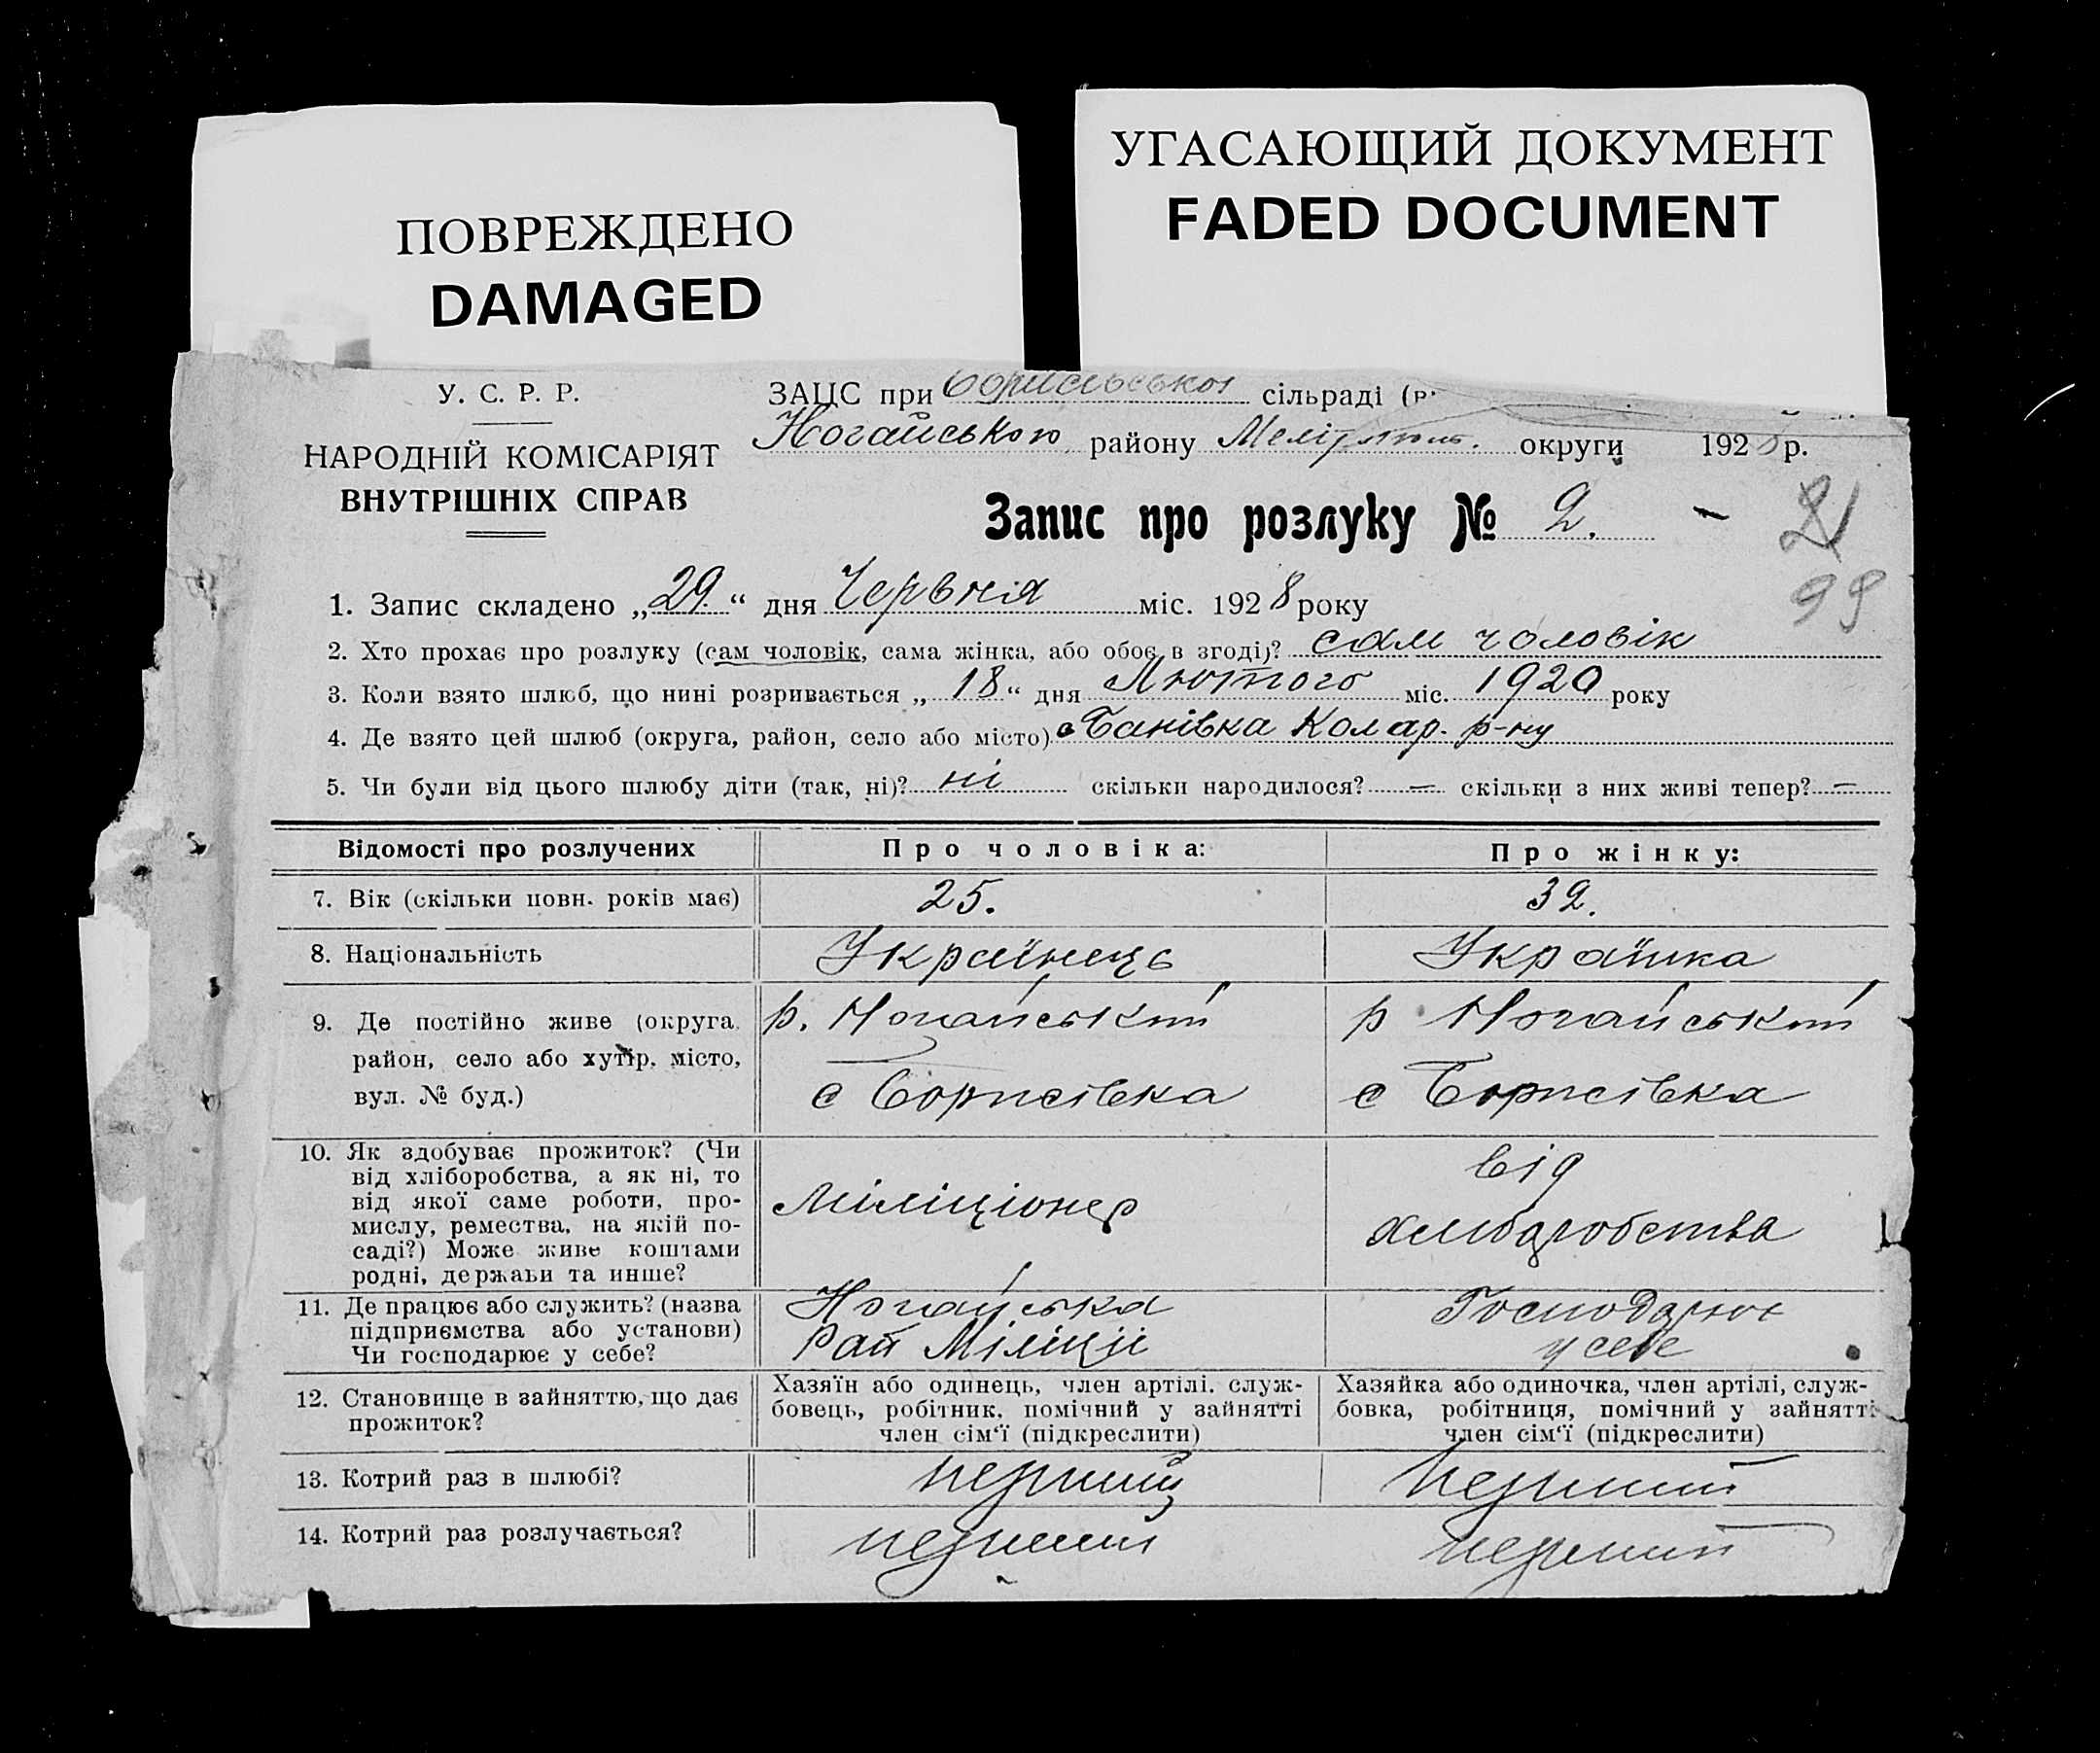 ПОВРЕЖДЕНО
DAMAGED
УГАСАЮЩИЙ ДОКУМЕНТ
FADED DOCUMENT
У. С. Р. Р.
НАРОДНІЙ КОМІСАРІЯТ
ВНУТРІШНІХ СПРАВ
ЗАЦС при сільраді
Ногайського району Меліт округи 1928 р.
Запис про розлуку № 2.
21
99
1. Запис складено „29“ дня Червня міс. 1928 року
2. Хто прохає про розлуку (сам чоловік, сама жінка, або обоє в згоді)? сам чоловік
3. Коли взято шлюб, що нині розривається „18“ дня Лютого міс. 1920 року
4. Де взято цей шлюб (округа, район, село або місто) с Банівка Колар. р-ну
5. Чи були від цього шлюбу діти (так, ні)? ні скільки народилося? — скільки з них живі тепер? —
Відомості про розлучених Про чоловіка: Про жінку:
7. Вік (скільки повн. років має) 25. 32.
8. Національність Українець Українка
9. Де постійно живе (округа, район, село або хутір, місто, вул. № буд.)
р. Ногайський
с Борисівка
р Ногайський
с Борисівка
10. Як здобуває прожиток? (Чи
від хліборобства, а як ні, то
від якої саме роботи, про-
мислу, ремества, на якій по-
саді?) Може живе коштами
родні, держави та инше?
Міліціонер
від
хліборобства
11. Де працює або служить? (назва
підприємства або установи)
Чи господарює у себе?
Ногайська
Рай Міліції
Господарює
у себе
12. Становище в зайняттю, що дає
прожиток?
Хазяїн або одинець, член артілі, служ-
бовець, робітник, помічний у зайнятті
член сім'ї (підкреслити)
Хазяйка або одиночка, член артілі, служ-
бовка, робітниця, помічний у зайнятті
член сім'ї (підкреслити)
13. Котрий раз в шлюбі? перший перший
14. Котрий раз розлучається? перший перший